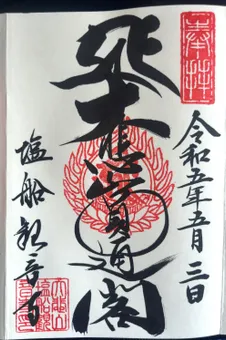 奉拝
令和五年五月三日
大悲
通閣
塩船観音寺